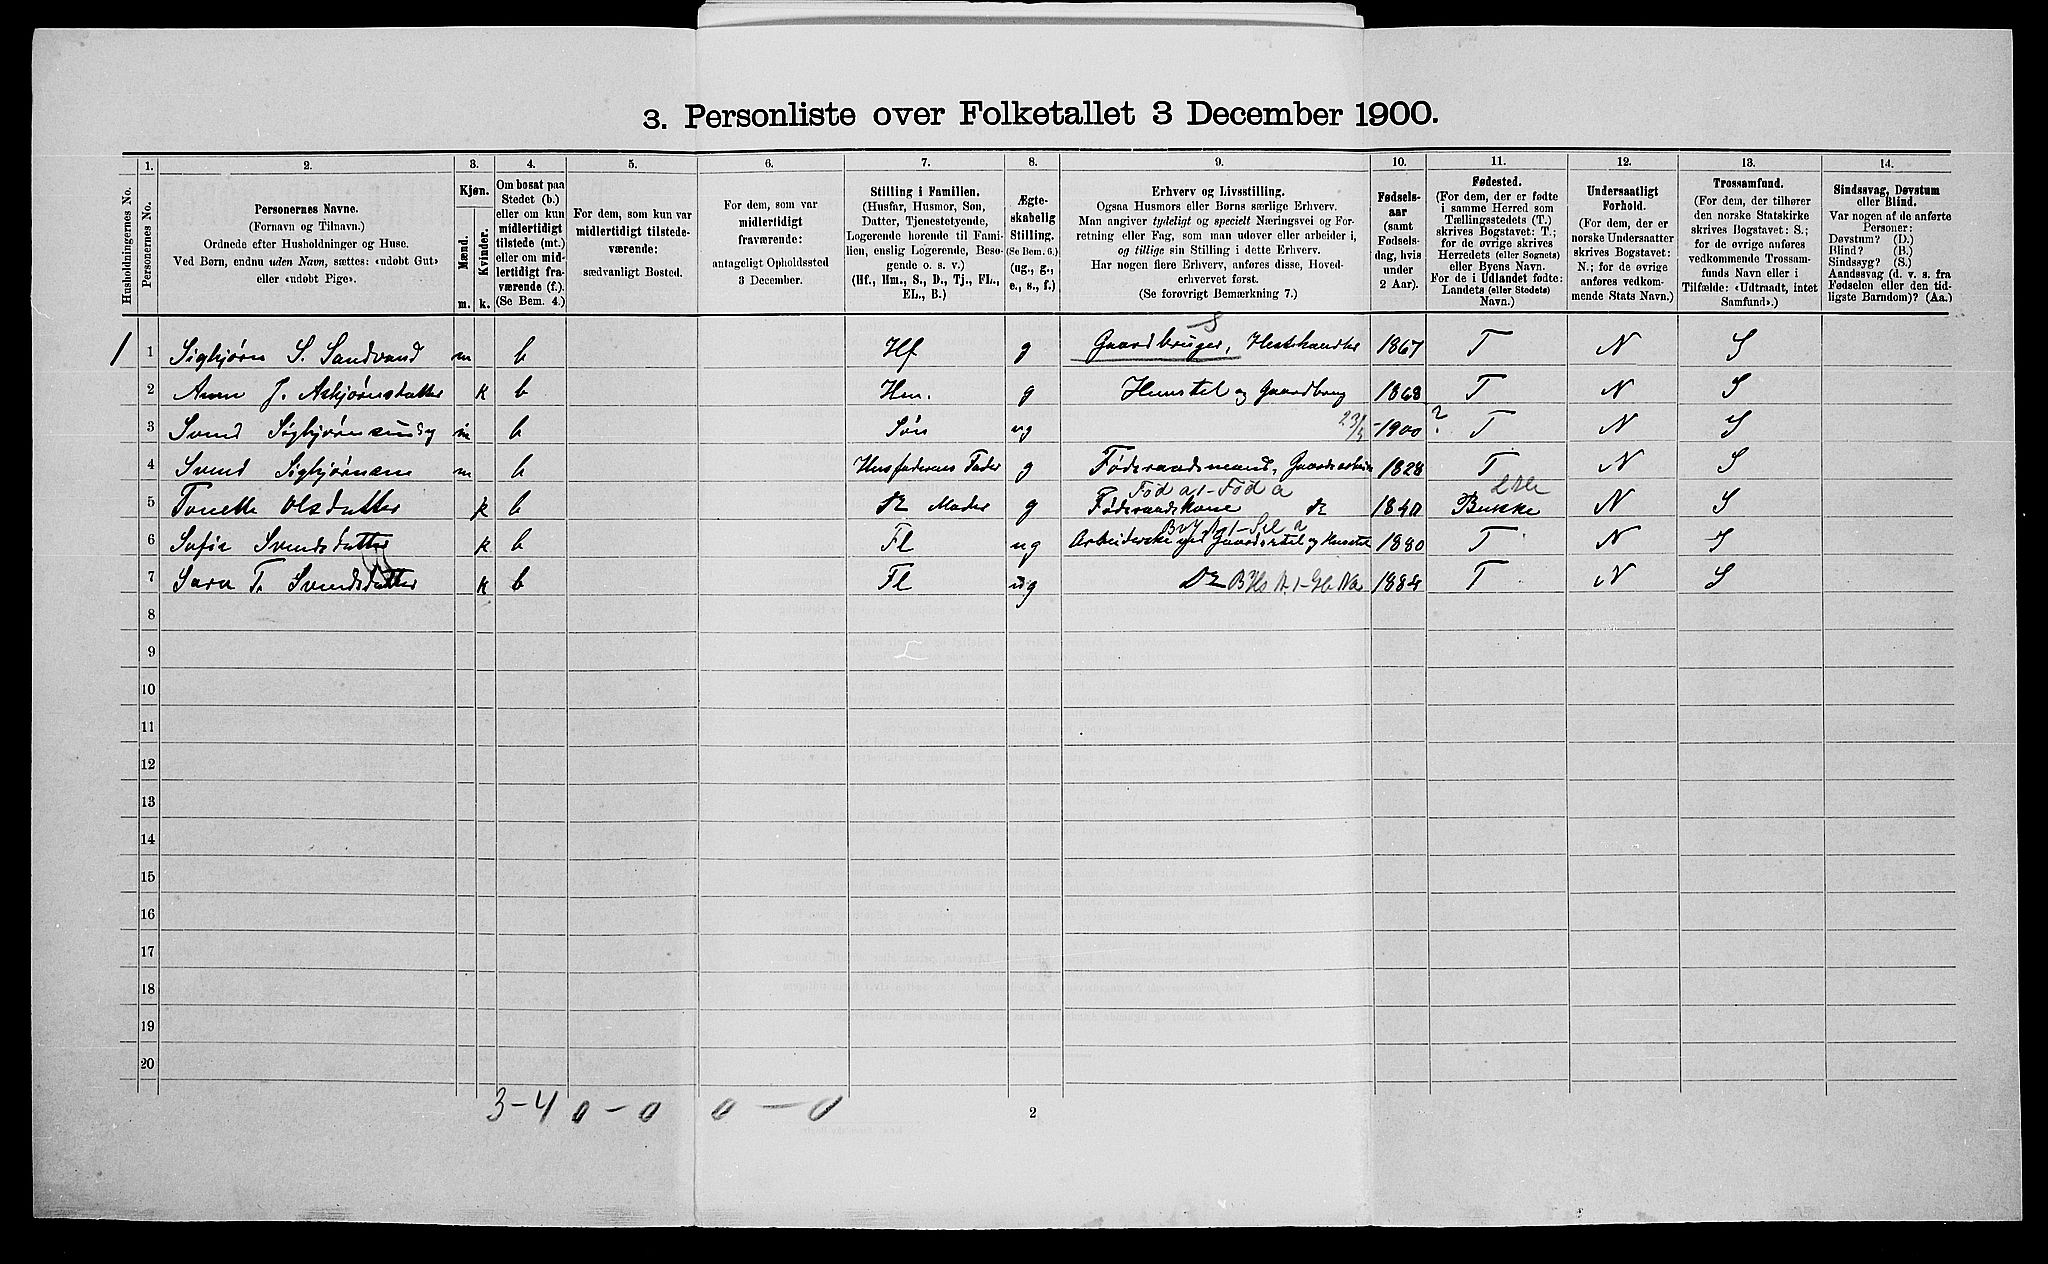 3. Personliste over Folketallet 3 December 1900.
Husholdningernes No.
1. Personernes No.
2. Personernes Navne.
(Fornavn og Tilnavn.)
Ordnede efter Husholdninger og Huse.
Ved Børn, endnu uden Navn, sættes: «udøbt Gut»
eller «udøbt Pige».
3. Kjøn.
Mænd. m.
Kvinder. k.
4. Om bosat paa
Stedet (b.)
eller om kun
midlertidigt
tilstede (mt.)
eller om mid-
lertidigt fra-
værende (f.).
(Se Bem. 4.)
5. For dem, som kun var
midlertidigt tilstede-
værende:
sædvanligt Bosted.
6. For dem, som var
midlertidigt
fraværende:
antageligt Opholdssted
3 December.
7. Stilling i Familien.
(Husfar, Husmor, Søn,
Datter, Tjenestetyende,
Logerende hørende til Fami-
lien, enslig Logerende, Besø-
gende o. s. v.)
(Hf., Hm., S., D., Tj., FL.,
EL., B.)
8. Ægte-
skabelig
Stilling.
(Se Bem. 6.)
(ug., g.,
e., s., f.)
9. Erhverv og Livsstilling.
Ogsaa Husmors eller Børns særlige Erhverv.
Man angiver tydeligt og specielt Næringsvei og For-
retning eller Fag, som man udover eller arbeider i,
og tillige sin Stilling i dette Erhverv.
Har nogen flere Erhverv, anføres disse, Hoved-
erhvervet først.
(Se forøvrigt Bemærkning 7.)
10. Fødsels-
aar
(samt
Fødsels-
dag, hvis
under
2 Aar).
11. Fødested.
(For dem, der er fødte
i samme Herred som
Tællingsstedets (T.)
skrives Bogstavet: T.;
for de øvrige skrives
Herredets (eller Sognets)
eller Byens Navn.
For de i Udlandet fødte:
Landets (eller Stedets)
Navn.)
12. Undersaatligt
Forhold.
(For dem, der er
norske Undersaatter
skrives Bogstavet:
N.; for de øvrige
anføres vedkom-
mende Stats Navn.)
13. Trossamfund.
(For dem, der tilhører
den norske Statskirke
skrives Bogstavet: S.;
for de øvrige anføres
vedkommende Trossam-
funds Navn eller i
Tilfælde: «Udtraadt, intet
Samfund».)
14. Sindssvag, Døvstum
eller Blind.
Var nogen af de anførte
Personer:
Døvstum? (D.)
Blind? (B.)
Sindssyg? (S.)
Aandssvag (d. v. s. fra
Fødselen eller den tid-
ligste Barndom)? (Aa.)
S
1 1 Sigbjørn S. Sandvand m b Hf g Gaardbruger, Hesthandler 1867 T N S
2 Anne J. Asbjørnsdatter k b Hm. g Husstel og Gaardbrug 1868 T N S
3 Svend Sigbjørnsen m b Søn ug 23/5 -1900 ? T N S
4 Svend Sigbjørnsen m b Husfaderens Fader g Føderaadsmand, Gaardsarbeide 1828 T N S
Fød a 1-Fød a
5 Tonette Olsdatter k b Do Moder g Føderaadskone do 1840 Bakke N S
6 Sofie Svendsdatter k b Fl ug Arbeiderske ved Gaardsstel og Husstel 1880 T N S
7 Sara T. Svendsdatter k b Fl ug Do 1884 T N S
8
9
10
11
12
13
14
15
16
17
18
19
20
3-4 0-0 0-0
2